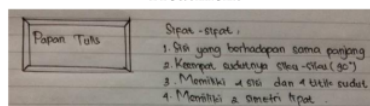 Papan Tulis
Sifat-sifat :
1. Sisi yang berhadapan sama panjang
2. Keempat sudutnya siku-siku (90°)
3. Memiliki 4 sisi dan 4 titik sudut
4. Memiliki 2 simetri lipat.